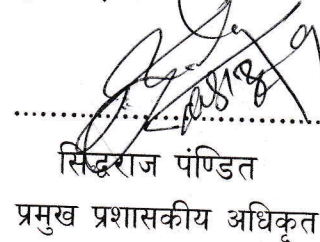 सिद्धराज पंण्डित
प्रमुख प्रशासकीय अधिकृत